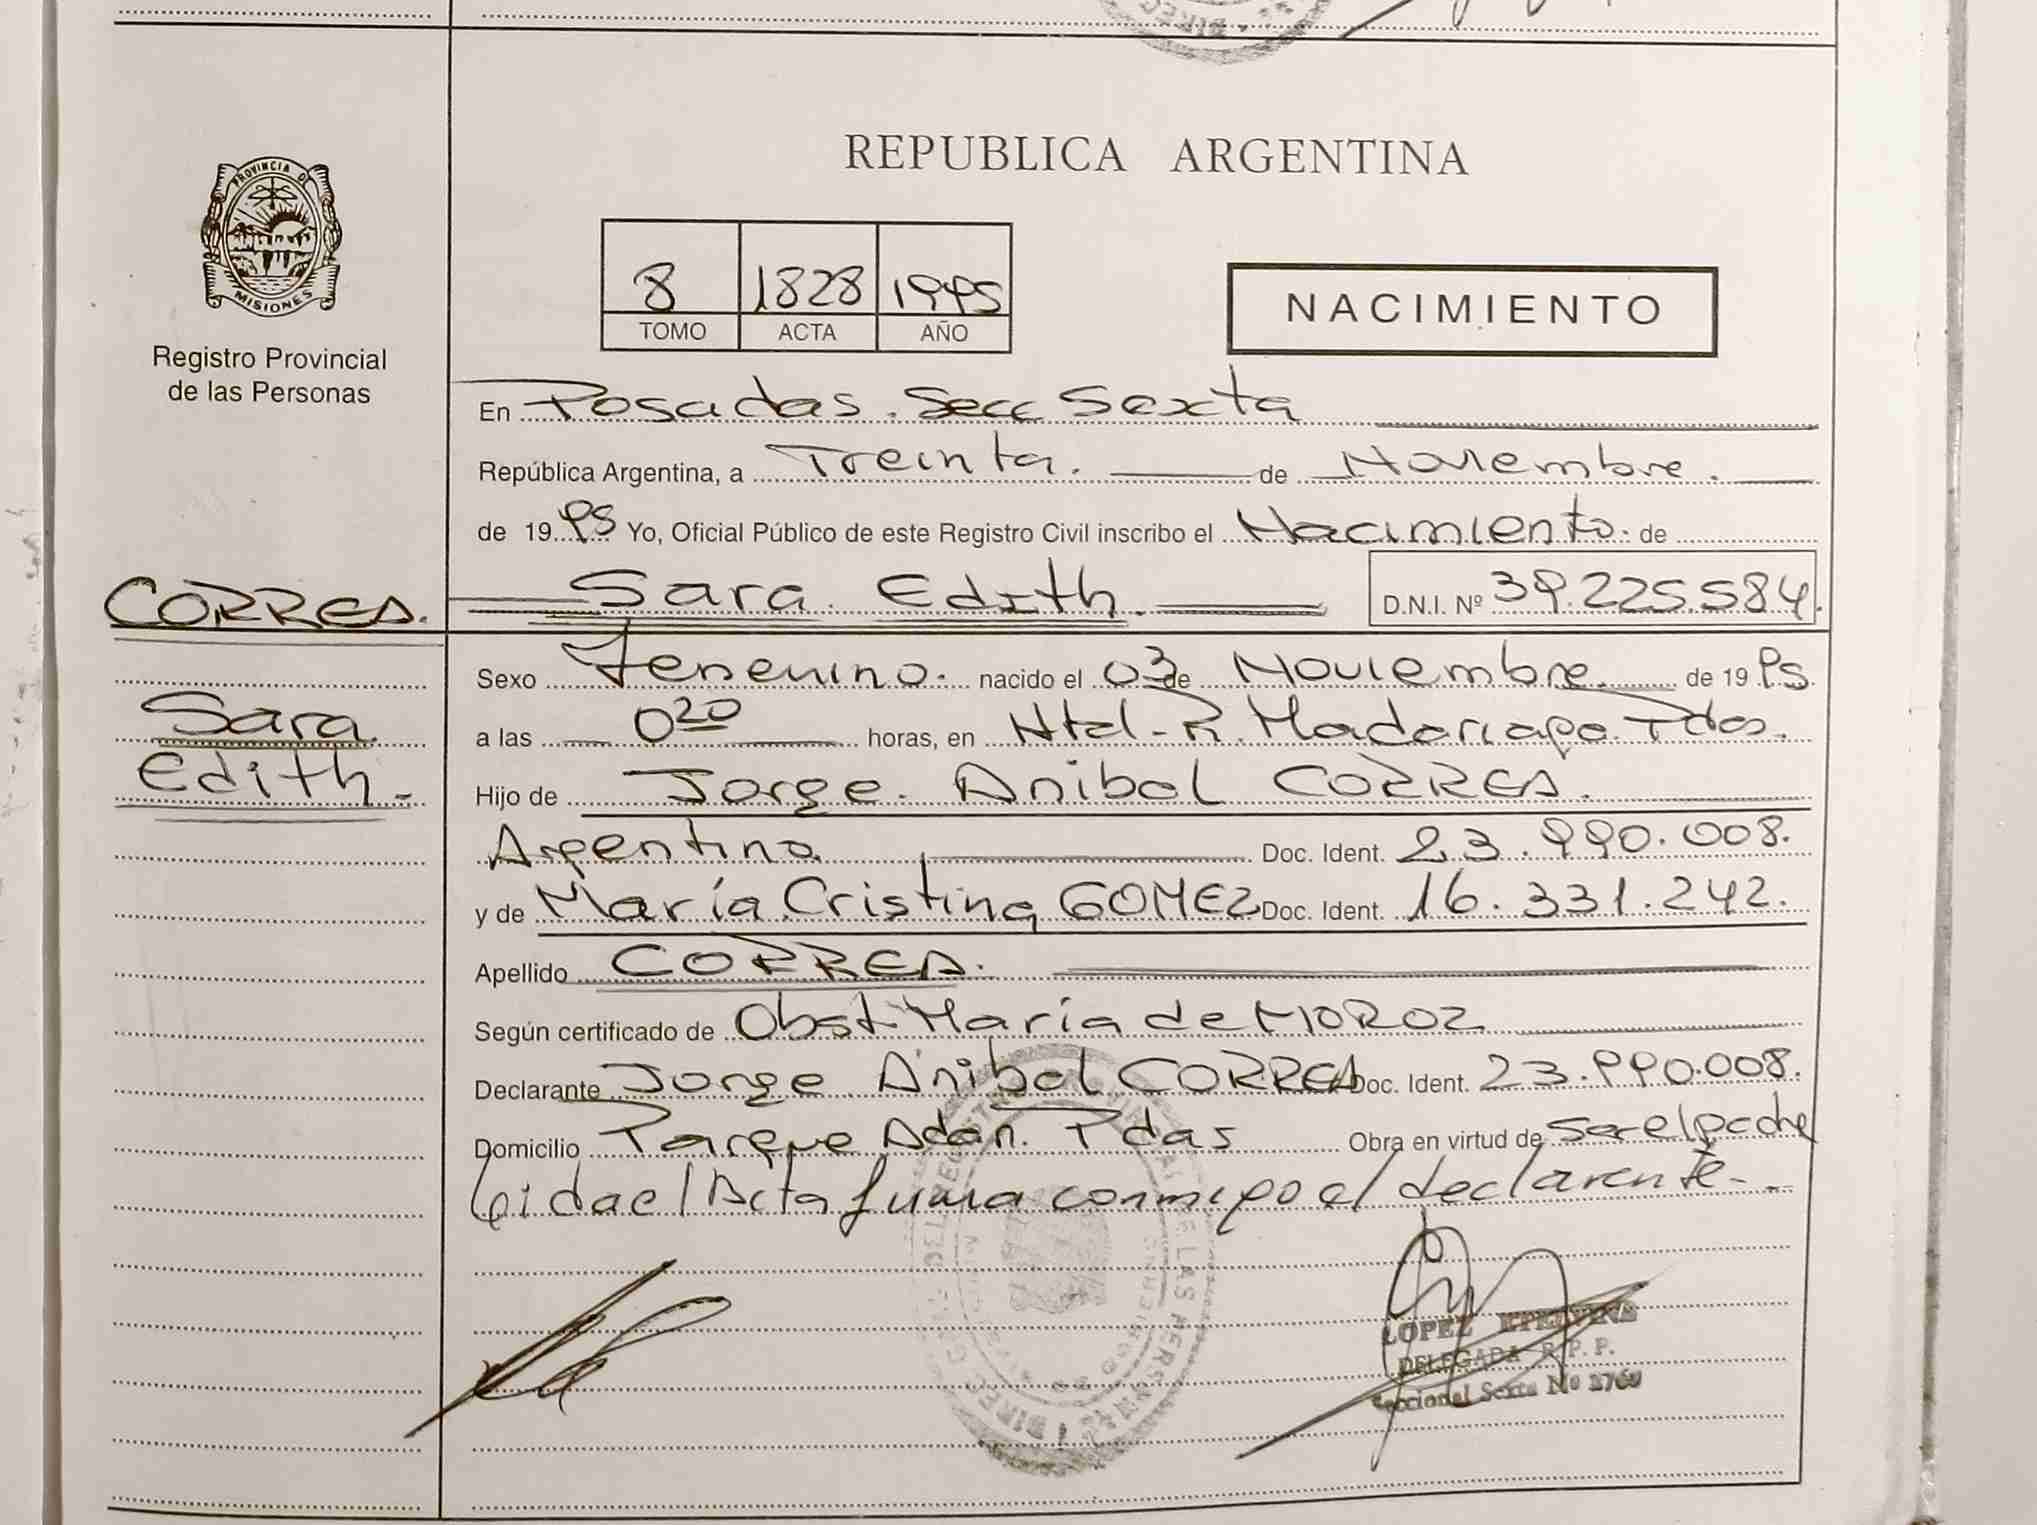 REPUBLICA ARGENTINA
PROVINCIA DE
MISIONES
Registro Provincial
de las Personas
8 1828 1995
TOMO ACTA AÑO
NACIMIENTO
En Posadas. Secc Sexta
República Argentina, a Treinta. de Noviembre.
de 1995 Yo, Oficial Público de este Registro Civil inscribo el Nacimiento. de
CORREA.
Sara Edith. D.N.I. Nº 39.225.584.
Sara
Edith.-
Sexo femenino. nacido el 03 de Noviembre. de 1995.
a las 0 20 horas, en Htal-R. Madariaga. Pdas.
Hijo de Jorge. Anibal CORREA.
Argentina Doc. Ident. 23.990.008.
y de María Cristina GOMEZ Doc. Ident. 16.331.242.
Apellido CORREA.
Según certificado de Obst. María de MOROZ
Declarante Jorge Anibal CORREA Doc. Ident. 23.990.008.
Domicilio Parque Adán. Pdas Obra en virtud de ser el padre
leida el Acta firma conmigo el declarante.-
LOPEZ
DELEGADA R. P. P.
Seccional Sexta Nº